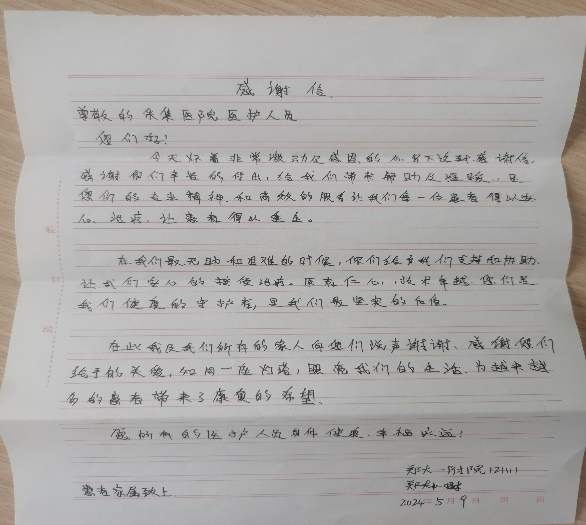 感谢信
尊敬的朱集医院医护人员
您们好!
今天怀着非常激动及感恩的心写下这封感谢信。
感谢你们辛苦的付出,给我们带来帮助及温暖。是
您们的专业精神和高效的服务让我们每一位患者得以安
心治疗,让患者得以重生。
在我们最无助和困难的时候,你们给予我们支持和协助
让我们安心的接受治疗。医者仁心,技术卓越。您们是
我们健康的守护者,是我们最坚实的后盾。
在此我及我们所有的家人向您们说声谢谢、感谢您们
给予的关爱,如同一座灯塔,照亮我们的生活,为越来越
多的患者带来了康复的希望。
愿所有的医护人员身体健康,幸福永远!
郑大一附院
患者家属致上
2024年5月9